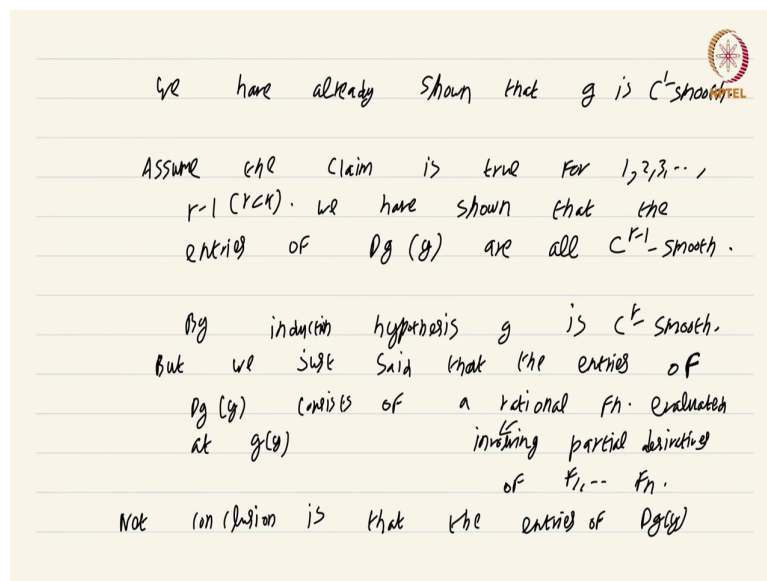 We have already shown that g is C¹-smooth
NPTEL
Assume the claim is true for 1,2,3,...,
r-1 (r<k). We have shown that the
entries of Dg(y) are all C^{r-1}-smooth.
By induction hypothesis g is C^r smooth.
But we just said that the entries of
Dg(y) consists of a rational fn. evaluated
at g(y) involving partial derivatives
of F₁,-- Fn.
Net conclusion is that the entries of Dg(y)